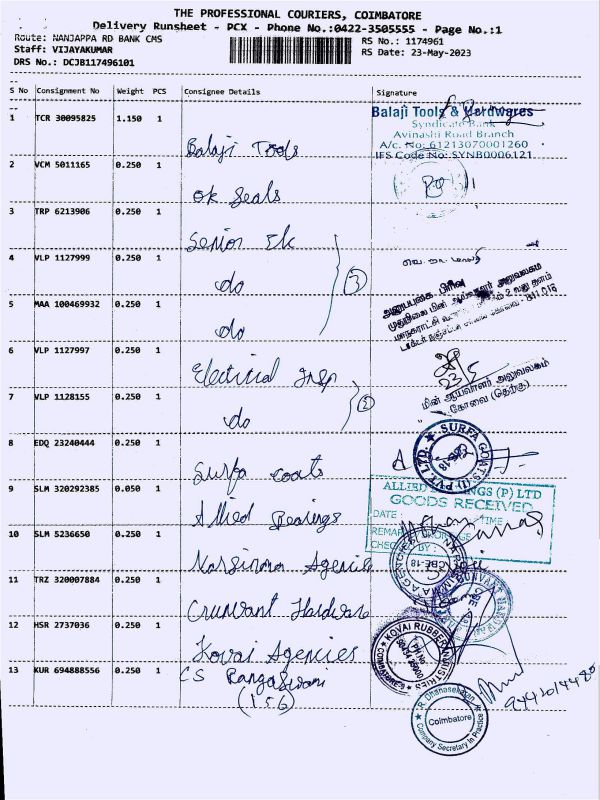 THE PROFESSIONAL COURIERS, COIMBATORE
Delivery Runsheet - PCX - Phone No.:0422-3505555 - Page No.:1
Route: NANJAPPA RD BANK CMS
Staff: VIJAYAKUMAR
DRS No.: DCJB117496101
RS No.: 1174961
RS Date: 23-May-2023
S No Consignment No Weight PCS Consignee Details Signature
1 TCR 30095825 1.150 1 Balaji Tools
Balaji Tools & Hardwares
Syndicate Bank
Avinashi Road Branch
A/c. No: 61213070001260
IFS Code No: SYNB0006121
2 VCM 5011165 0.250 1 Ok Seals
3 TRP 6213906 0.250 1 Senior Ek
4 VLP 1127999 0.250 1 do
(3)
5 MAA 100469932 0.250 1 do
முதுநிலை மின் ஆய்வாளர் அலுவலகம்
6 VLP 1127997 0.250 1 Electrical Insp
23/5
7 VLP 1128155 0.250 1 do
(2)
மின் ஆய்வாளர் அலுவலகம்
கோவை (தெற்கு)
8 EDQ 23240444 0.250 1 Surfa coats
SURFA COATS (I) PVT. LTD.
9 SLM 320292385 0.050 1 Allied Bearings
ALLIED BEARINGS (P) LTD
GOODS RECEIVED
DATE : TIME :
10 SLM 5236650 0.250 1 Narsimma Agencies
CBE-18
11 TRZ 320007884 0.250 1 Crunvant Hardware
12 HSR 2737036 0.250 1 Kovai Agencies
KOVAI RUBBER INDUSTRIES
13 KUR 694888556 0.250 1 CS RangaSwami
(156)
R. Dhanasekaran
Coimbatore
Company Secretary in Practice